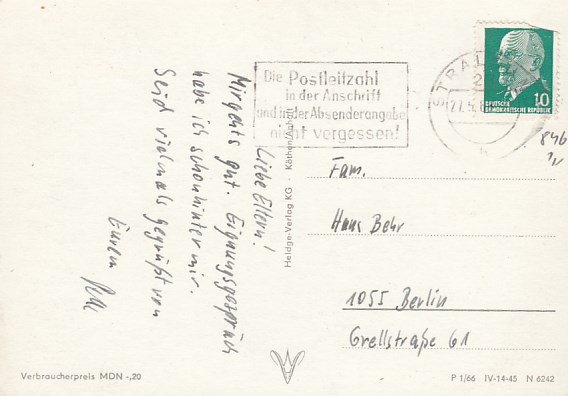 Liebe Eltern!
Mir gehts gut. Eignungsgespräch
habe ich schon hinter mir.
Seid vielmals gegrüßt von
Eurem
Die Postleitzahl
in der Anschrift
und in der Absenderangabe
nicht vergessen!
STRAL
DEUTSCHE
DEMOKRATISCHE REPUBLIK
10
Heldge-Verlag KG · Köthen-Anhalt
Fam.
Hans Behr
1055 Berlin
Grellstraße 61
Verbraucherpreis MDN -,20
P 1/66 IV-14-45 N 6242